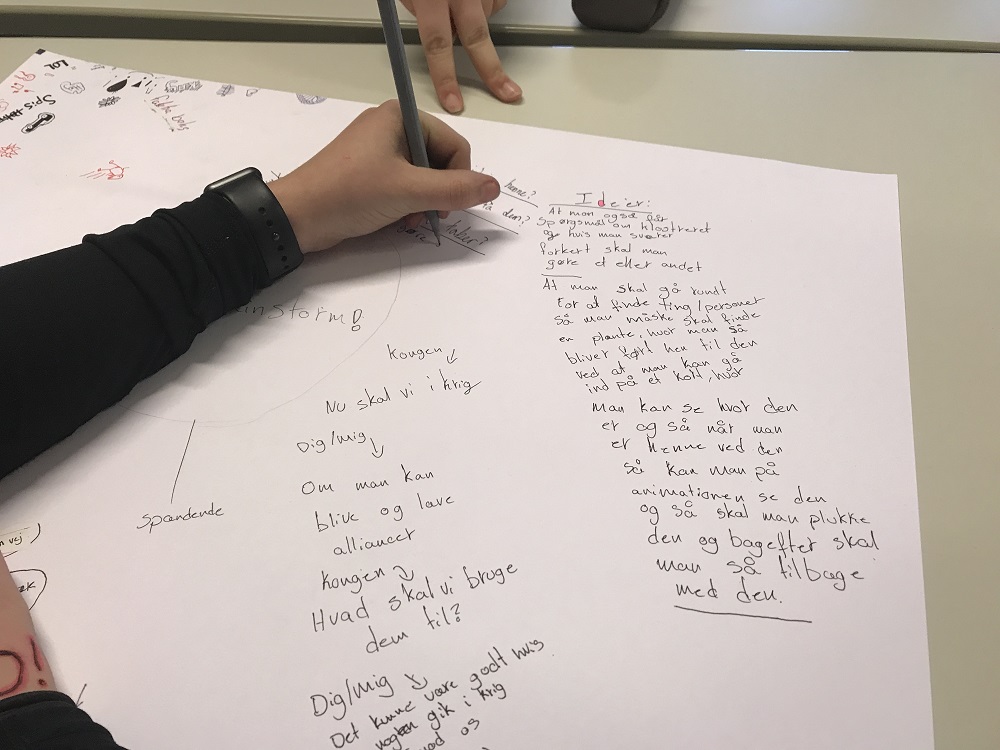 LOL
Spis
høre?
den?
instorm!
Spændende
n vej
Kongen
Nu skal vi i krig
Dig/mig
Om man kan
blive og lave
alliancer
Kongen
Hvad skal vi bruge
dem til?
Dig/mig
Det kunne være godt hvis
nogen gik i krig
mod os
Ideer:
At man også får
Spørgsmål om klostreret
og hvis man svarer
forkert skal man
gøre et eller andet
At man skal gå rundt
for at finde ting/personer
så man måske skal finde
en plante, hvor man så
bliver ført hen til den
ved at man kan gå
ind på et kort, hvor
man kan se hvor den
er og så når man
er henne ved den
så kan man på
animationen se den
og så skal man plukke
den og bagefter skal
man så tilbage
med den.